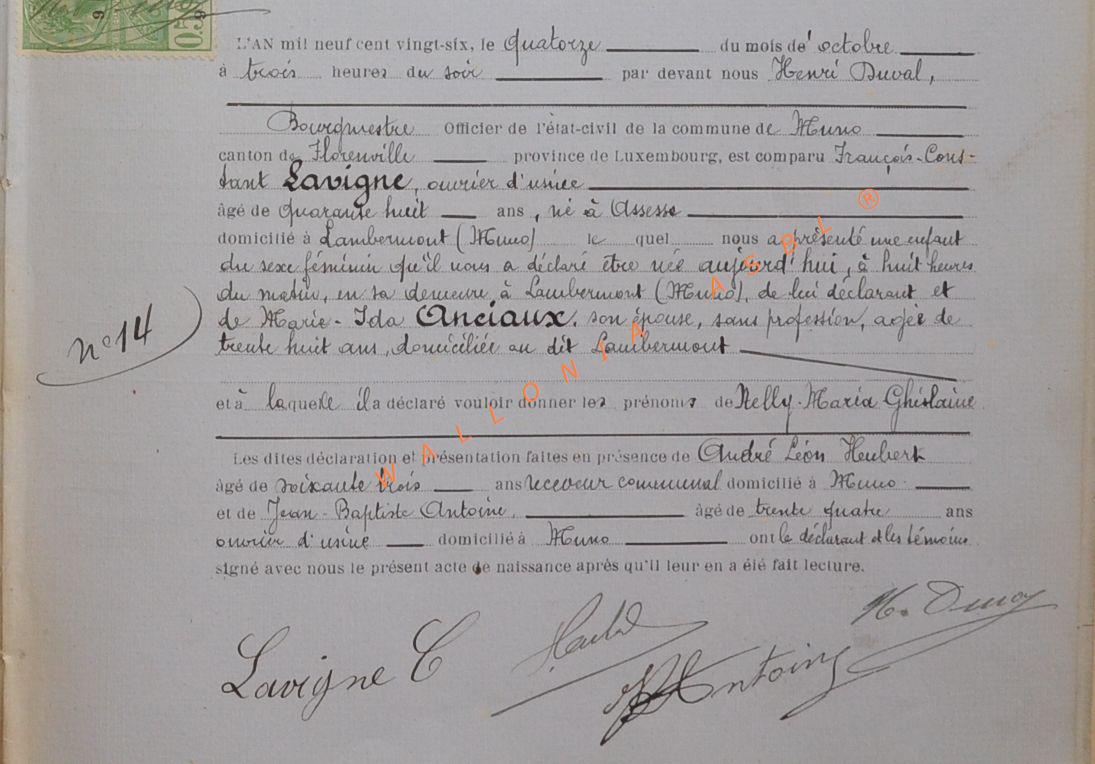 0.5
9
9
L'AN mil neuf cent vingt-six, le quatorze du mois de octobre
à trois heures du soir par devant nous Henri Duval,
Bourgmestre Officier de l'état-civil de la commune de Muno
canton de Florenville province de Luxembourg, est comparu François-Cons-
tant Lavigne, ouvrier d'usine
âgé de quarante huit ans, né à Assesse
domicilié à Lambermont (Muno) le quel nous a présenté une enfant
du sexe féminin qu'il nous a déclaré être née aujourd'hui, à huit heures
du matin, en sa demeure à Lambermont (Muno), de lui déclarant et
de Marie-Ida Anciaux, son épouse, sans profession, agée de
trente huit ans, domiciliée au dit Lambermont
n° 14
et à laquelle il a déclaré vouloir donner les prénoms de Nelly-Maria Ghislaine
Les dites déclaration et présentation faites en présence de André Léon Heubert
âgé de soixante trois ans receveur communal domicilié à Muno
et de Jean-Baptiste Antoine, âgé de trente quatre ans
ouvrier d'usine domicilié à Muno ont le déclarant et les témoins
signé avec nous le présent acte de naissance après qu'il leur en a été fait lecture.
WALLONIA ASBL ®
Lavigne C
Antoine
H.